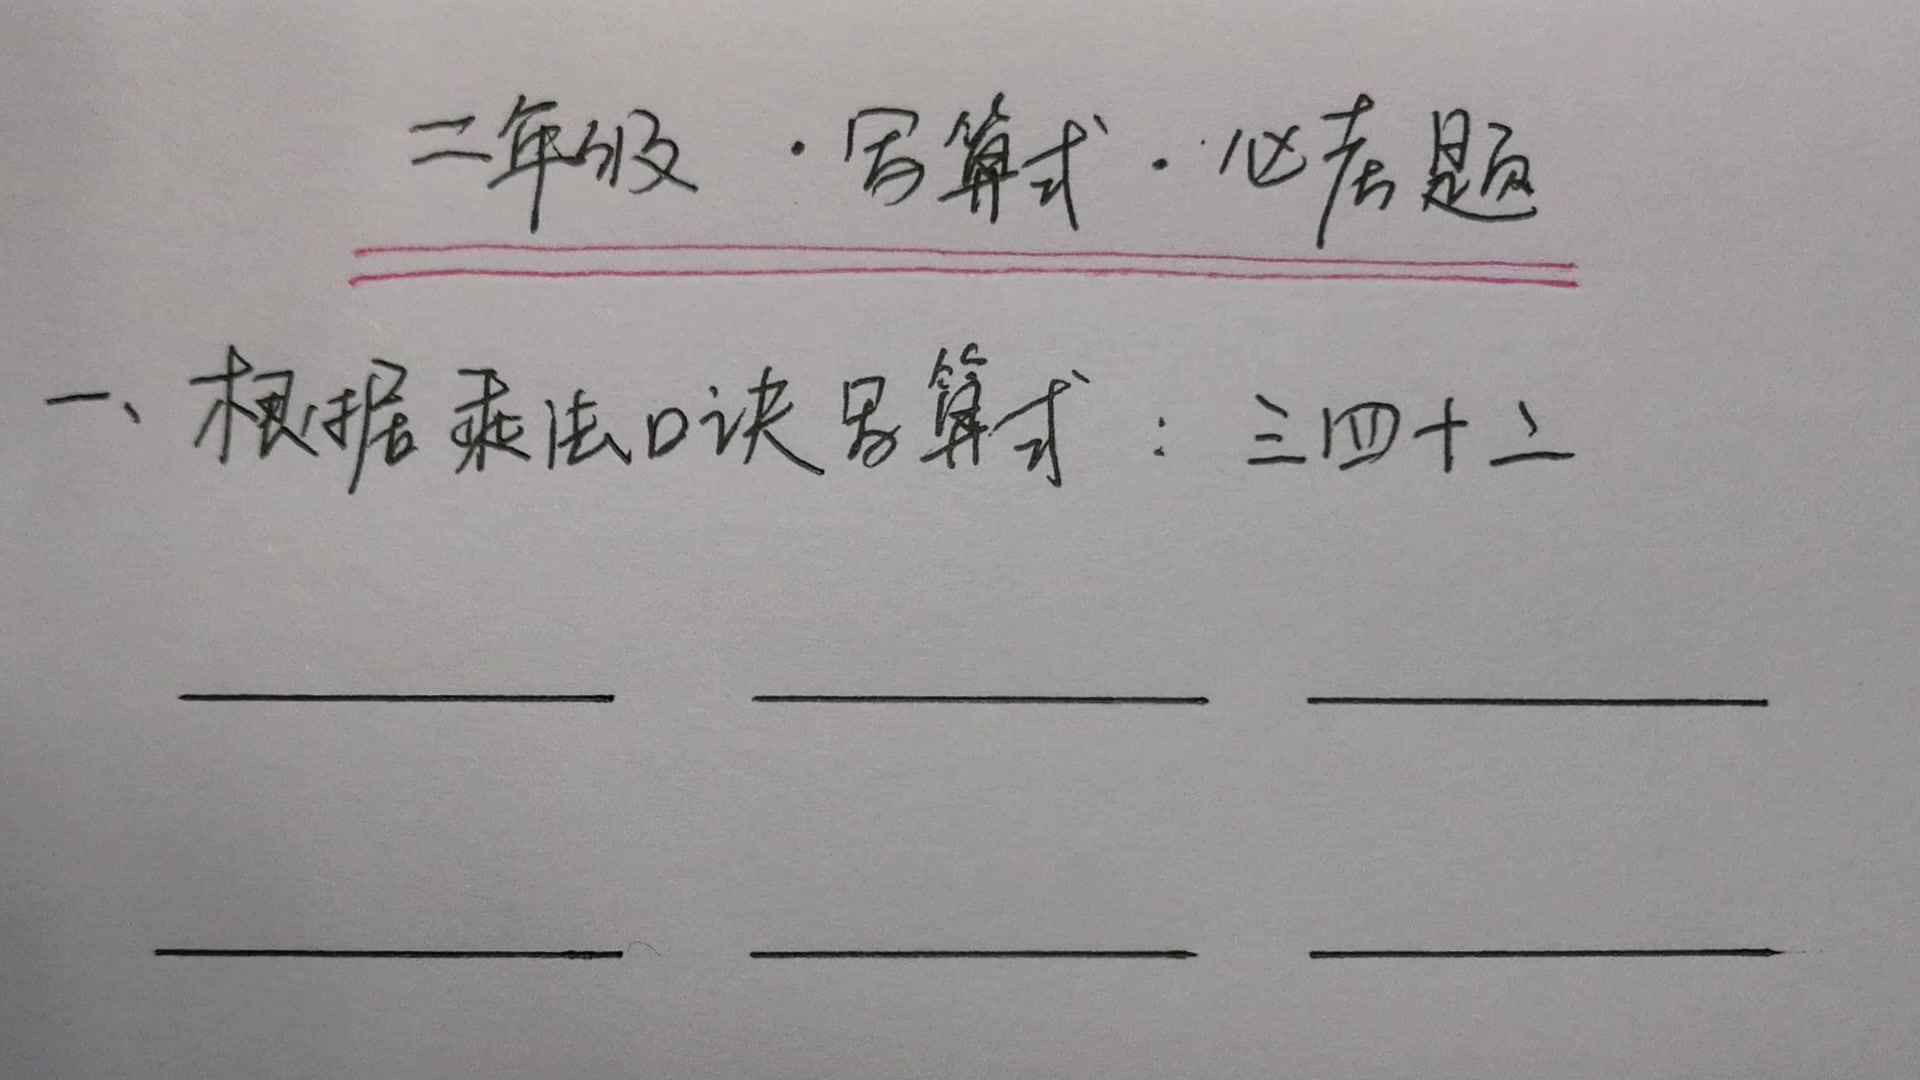 二年级·写算式·必考题
一、根据乘法口诀写算式：三四十二